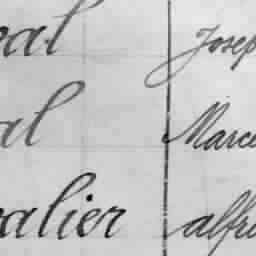 eal Josep
al Marce
valier alfre